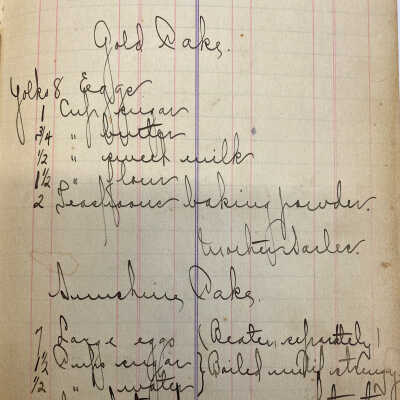 Gold Cake.
Yolks 8 Eggs
1 Cup sugar
3/4 " butter
1/2 " sweet milk
1 1/2 " flour
2 Teaspoons baking powder.
Sunshine Cake.
7 Large eggs (Beaten seperately)
1 1/2 Cups sugar } Boiled until stringy
1/2 " water